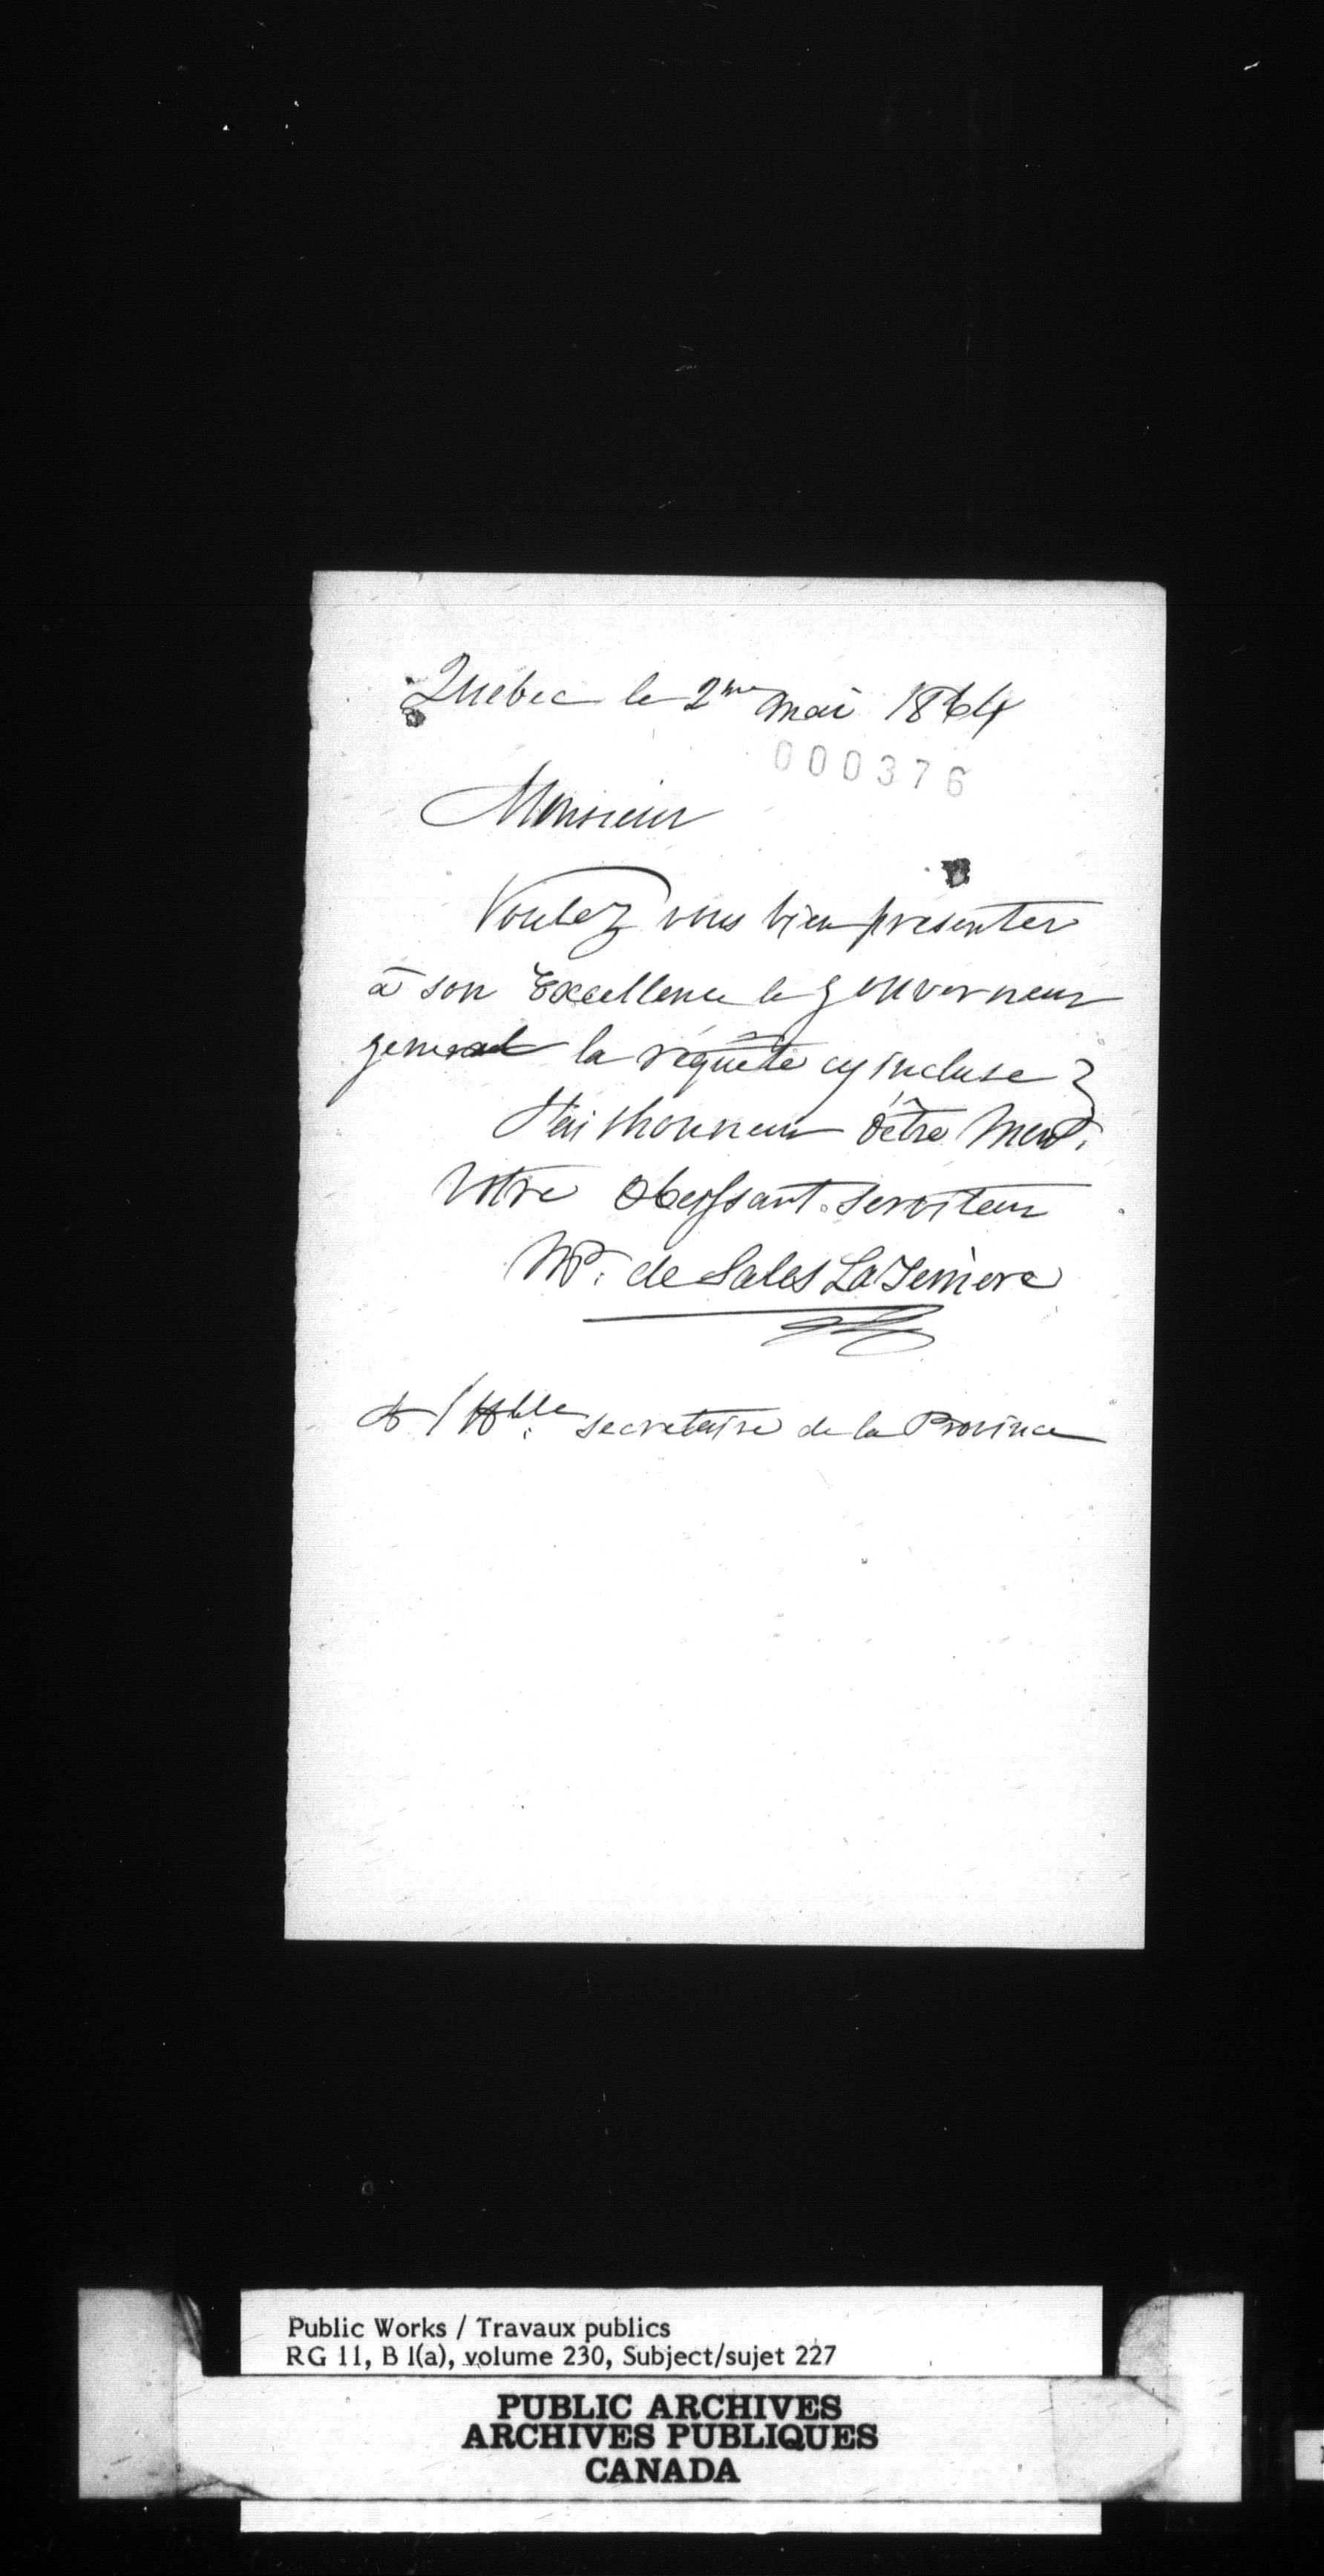 Quebec le 2me mai 1864
000376
Monsieur
Voulez vous bien presenter
à son Excellence le gouverneur
general la réquête cy incluse
J'ai l'honneur d'être
Votre Obeissant Serviteur
de Sales LaTerriere
A l'Hble secretaire de la Province
Public Works / Travaux publics
RG 11, B 1(a), volume 230, Subject/sujet 227
PUBLIC ARCHIVES
ARCHIVES PUBLIQUES
CANADA